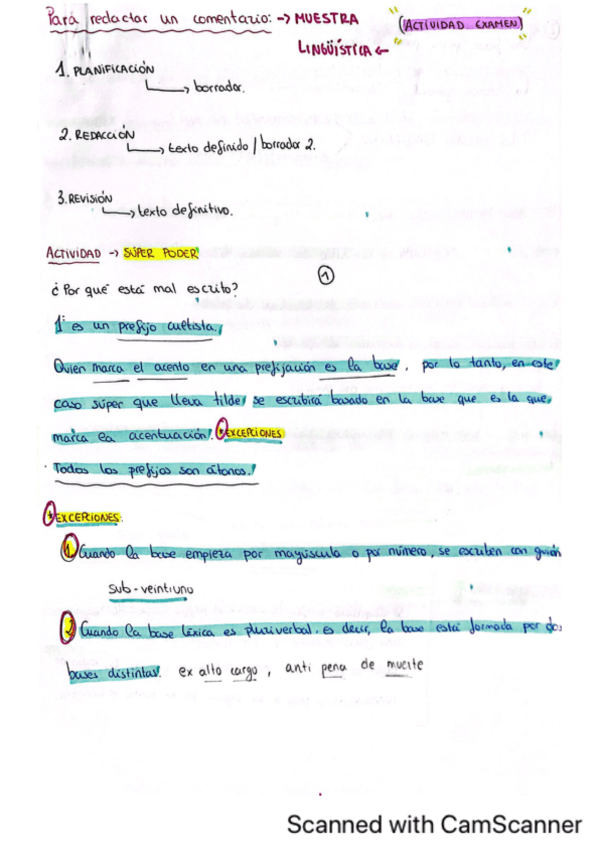 Para redactar un comentario: -> MUESTRA (ACTIVIDAD EXAMEN)
LINGÜÍSTICA <-
1. PLANIFICACIÓN
-> borrador.
2. REDACCIÓN
-> texto definido / borrador 2.
3. REVISIÓN
-> texto definitivo.
ACTIVIDAD -> SÚPER PODER
¿Por qué está mal escrito? 1
1º es un prefijo cuetista.
Quien marca el acento en una prefijación es la base, por lo tanto, en este
caso súper que lleva tilde, se escribirá basado en la base que es la que
marca la acentuación. *EXCEPCIONES
· Todos los prefijos son átonos.
*EXCEPCIONES:
1 Cuando la base empieza por mayúscula o por número, se escriben con guión
sub-veintiuno
2 Cuando la base léxica es pluriverbal. es decir, la base está formada por dos
bases distintas. ex alto cargo, anti pena de muerte
Scanned with CamScanner